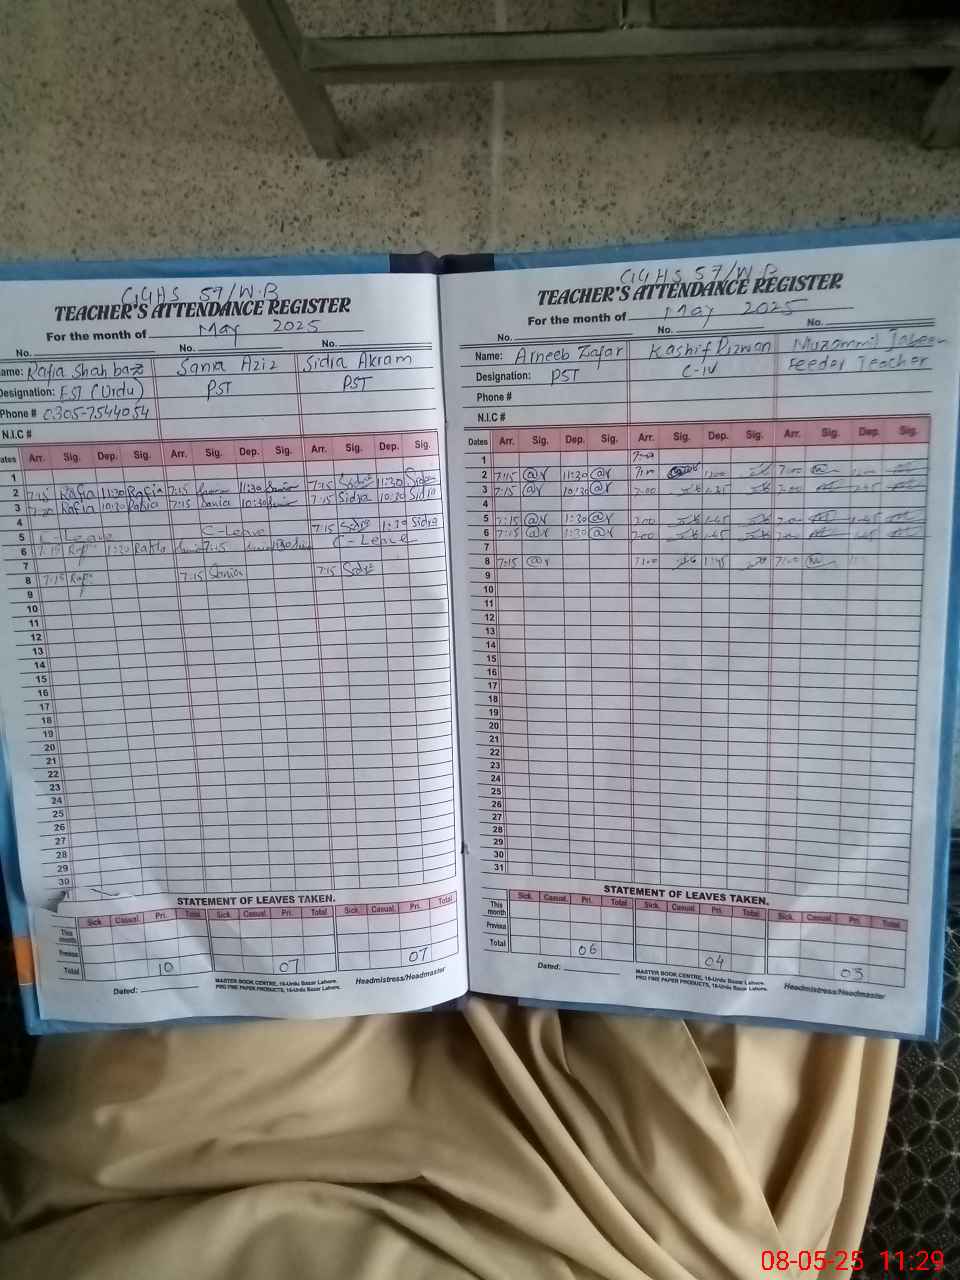 GGHS 57/W.B
TEACHER'S ATTENDANCE REGISTER
For the month of May 2025
No. No. No.
Name: Rafia Shahbaz Sania Aziz Sidra Akram
Designation: EST (Urdu) PST PST
Phone # 0305-7544054
N.I.C #
Dates Arr. Sig. Dep. Sig. Arr. Sig. Dep. Sig. Arr. Sig. Dep. Sig.
1
2 7:15 Rafia 11:30 Rafia 7:15 11:30 7:15 Sidra 11:30 Sidra
3 7:20 Rafia 10:30 Rafia 7:15 Sania 10:30 7:15 Sidra 10:30 Sidra
4
5 C-Leave C-Leave 7:15 Sidra 1:30 Sidra
6 7:15 Raf 1:30 Rafia 7:15 C-Leave
7
8 7:15 Raf 7:15 Sania 7:15 Sidra
9
10
11
12
13
14
15
16
17
18
19
20
21
22
23
24
25
26
27
28
29
30
31
STATEMENT OF LEAVES TAKEN.
Sick. Casual. Pri. Total Sick. Casual. Pri. Total Sick. Casual. Pri. Total
This month
Previous
Total 10 07 07
Dated:
MASTER BOOK CENTRE, 16-Urdu Bazar Lahore.
PRO FINE PAPER PRODUCTS, 16-Urdu Bazar Lahore.
Headmistress/Headmaster
GGHS 57/W.B
TEACHER'S ATTENDANCE REGISTER
For the month of May 2025
No. No. No.
Name: Arneeb Zafar Kashif Rizwan Muzammil Jabeen
Designation: PST C-IV Feeder Teacher
Phone #
N.I.C #
Dates Arr. Sig. Dep. Sig. Arr. Sig. Dep. Sig. Arr. Sig. Dep. Sig.
1 7:00
2 7:15 11:30 7:00 7:00
3 7:15 10:30 7:00 7:00
5 7:15 1:30 7:00 1:45 7:00 1:45
6 7:15 1:30 7:00 1:45 7:00 1:45
7
8 7:15 7:00 1:45 7:00
9
10
11
12
13
14
15
16
17
18
19
20
21
22
23
24
25
26
27
28
29
30
31
STATEMENT OF LEAVES TAKEN.
Sick. Casual. Pri. Total Sick. Casual. Pri. Total Sick. Casual. Pri. Total
This month
Previous
Total 06 04 03
Dated:
MASTER BOOK CENTRE, 16-Urdu Bazar Lahore.
PRO FINE PAPER PRODUCTS, 16-Urdu Bazar Lahore.
Headmistress/Headmaster
08-05-25 11:29